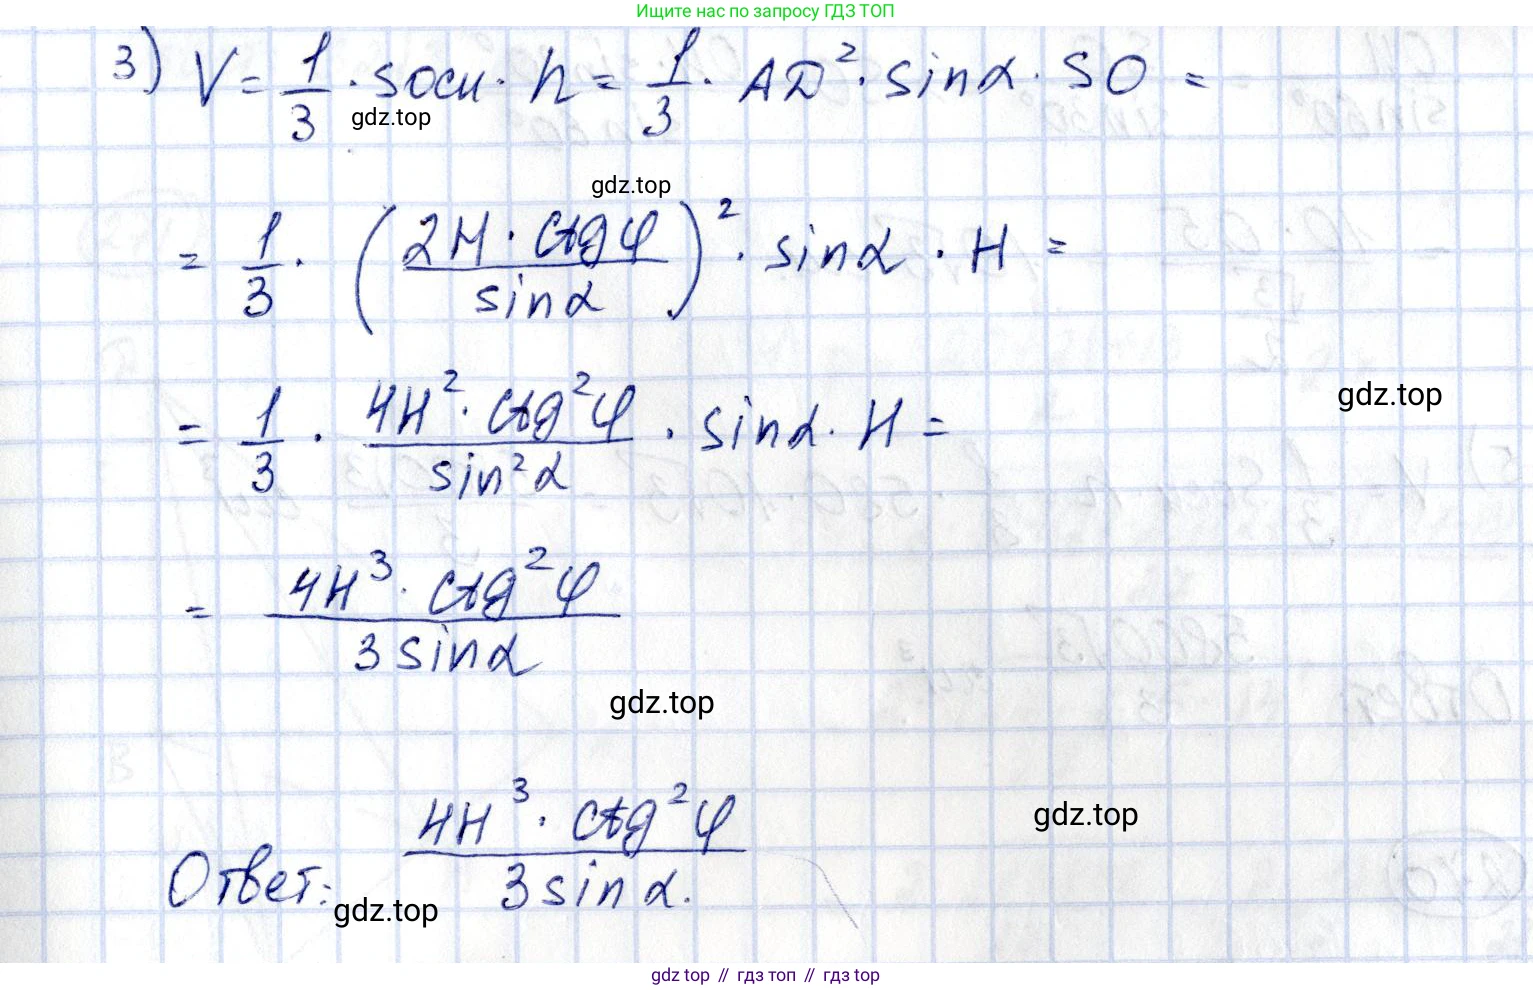 Ищите нас по запросу ГДЗ ТОП
3) V = 1/3 · Sосн · h = 1/3 · AD² · sinα · SO =
gdz.top
gdz.top
= 1/3 · (2H · ctgφ / sinα)² · sinα · H =
gdz.top
= 1/3 · 4H² · ctg²φ / sin²α · sinα · H =
= 4H³ · ctg²φ / 3 sinα
gdz.top
gdz.top
Ответ: 4H³ · ctg²φ / 3 sinα.
gdz.top
gdz top // гдз топ // гдз top